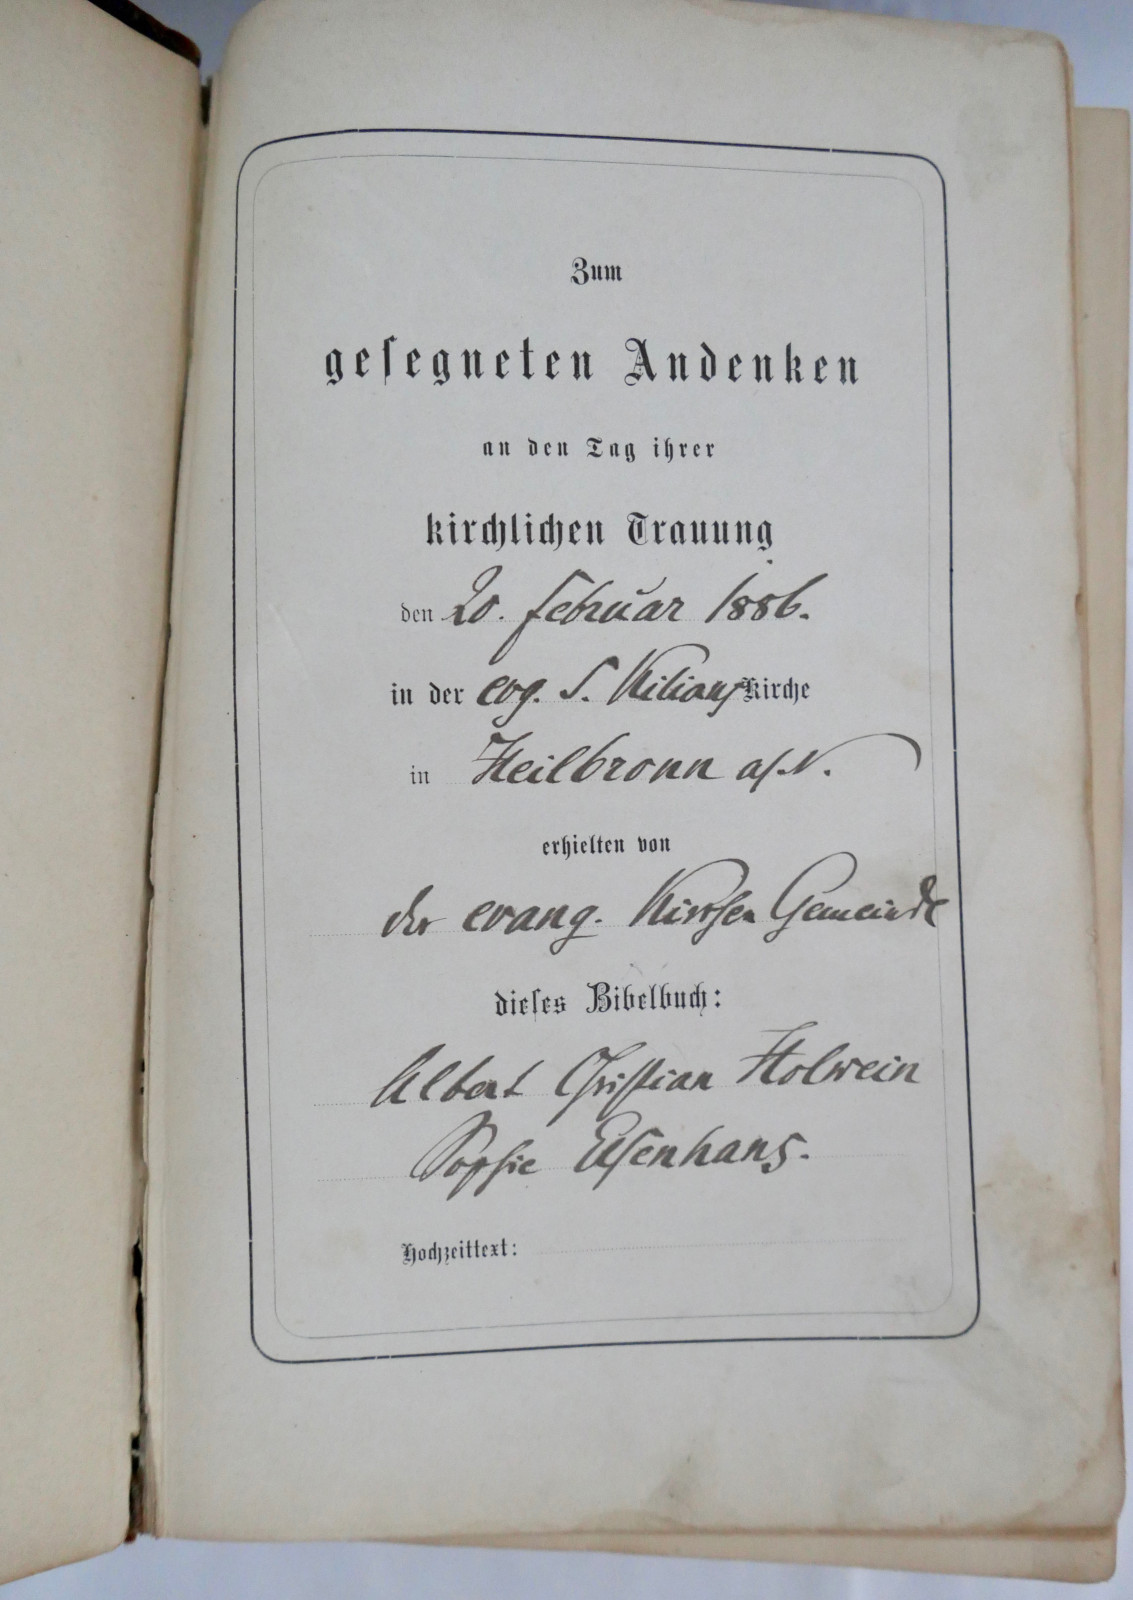 Zum
gesegneten Andenken
an den Tag ihrer
kirchlichen Trauung
den 20. Februar 1886.
in der evg. S. Kilians Kirche
in Heilbronn a/N.
erhielten von
der evang. Kirchen Gemeinde
dieses Bibelbuch:
Albert Christian Holwein
Sophie Elsenhans.
Hochzeittext: